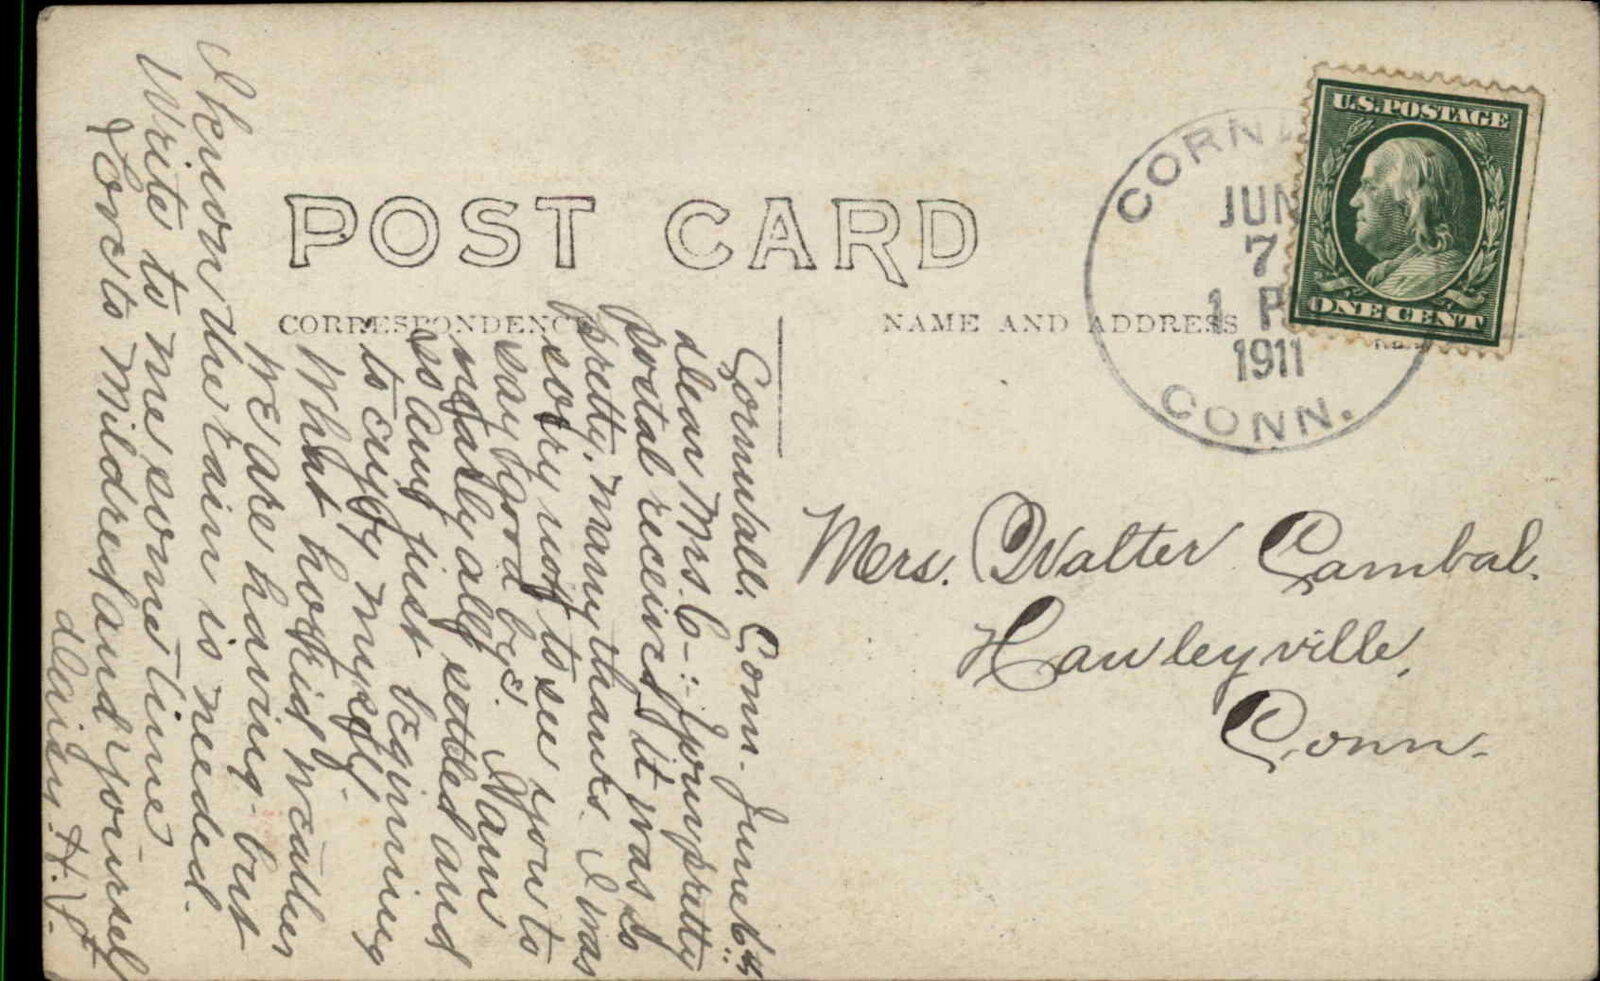 POST CARD
CORRESPONDENCE
NAME AND ADDRESS
CORN
JUN
7
1 P
1911
CONN.
U.S. POSTAGE
ONE CENT
Mrs. Walter Cambal.
Hawleyville,
Conn.
Cornwall. Conn. June 6th
dear Mrs. C-:- your pretty
postal received, it was so
pretty, many thanks. I was
sorry not to see you to
say good bye. I am
nearly all settled and
so am just beginning
to enjoy myself.
What horrid weather
we are having but
I know the rain is needed.
Write to me sometime
Love to Mildred and yourself
daisy. H. V.